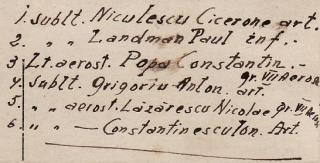 1. sublt. Niculescu Cicerone art.
2. „ „ Landman Paul inf.-
3 Lt. aerost. Popa Constantin.-
4. sublt. Grigoriu Anton. art. gr. VII Aerost
5. „ „ aerost. Lăzărescu Nicolae gr. VII
6. „ „ — Constantinescu Ion. Art.